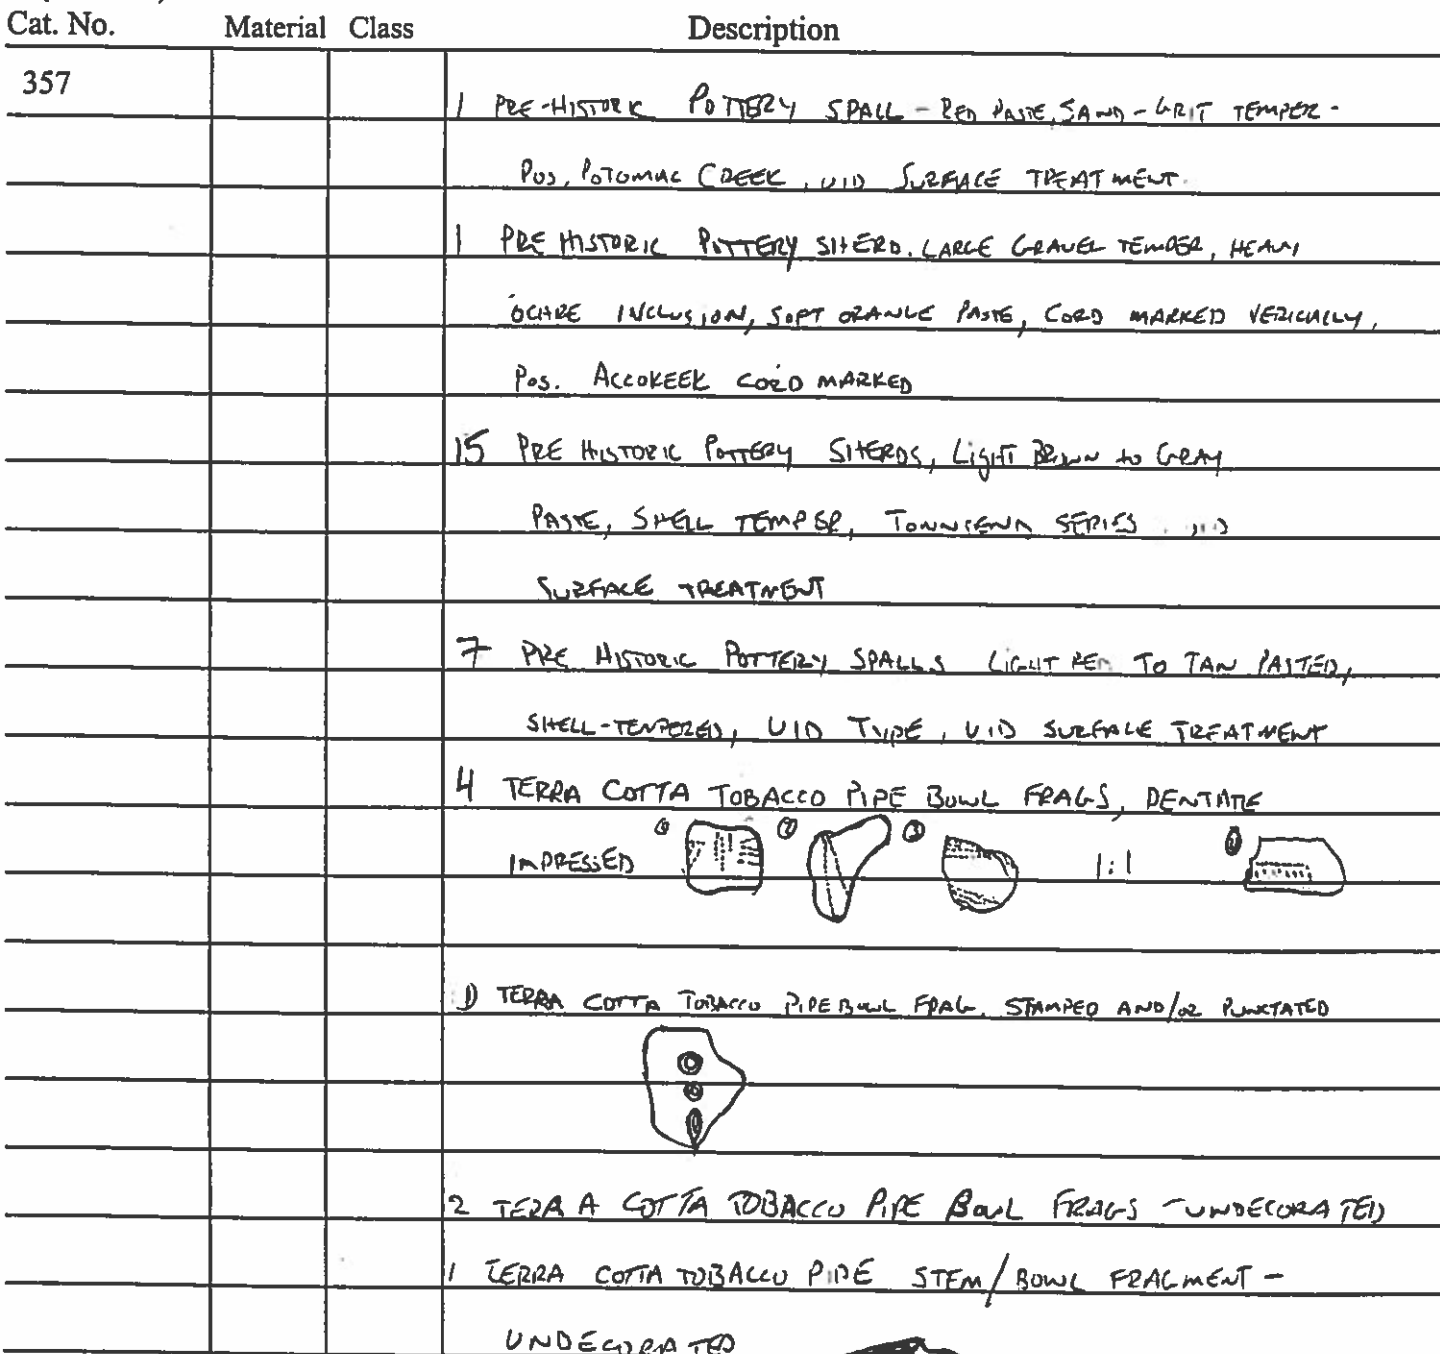 Cat. No. Material Class Description
357
1 PRE-HISTORIC POTTERY SPALL - RED PASTE, SAND-GRIT TEMPER -
POS. POTOMAC CREEK, UID SURFACE TREATMENT.
1 PRE HISTORIC POTTERY SHERD. LARGE GRAVEL TEMPER, HEAVY
OCHRE INCLUSION, SOFT ORANGE PASTE, CORD MARKED VERICALLY,
POS. ACCOKEEK CORD MARKED
15 PRE HISTORIC POTTERY SHERDS, LIGHT BROWN to GRAY
PASTE, SHELL TEMPER, TOWNSEND SERIES. UID
SURFACE TREATMENT
7 PRE HISTORIC POTTERY SPALLS LIGHT RED TO TAN PASTED,
SHELL-TEMPERED, UID TYPE, UID SURFACE TREATMENT
4 TERRA COTTA TOBACCO PIPE BOWL FRAGS, DENTATE
IMPRESSED 1:1
1 TERRA COTTA TOBACCO PIPE BOWL FRAG. STAMPED AND/OR PUNCTATED
2 TERRA COTTA TOBACCO PIPE BOWL FRAGS - UNDECORATED
1 TERRA COTTA TOBACCO PIPE STEM/BOWL FRAGMENT -
UNDECORATED